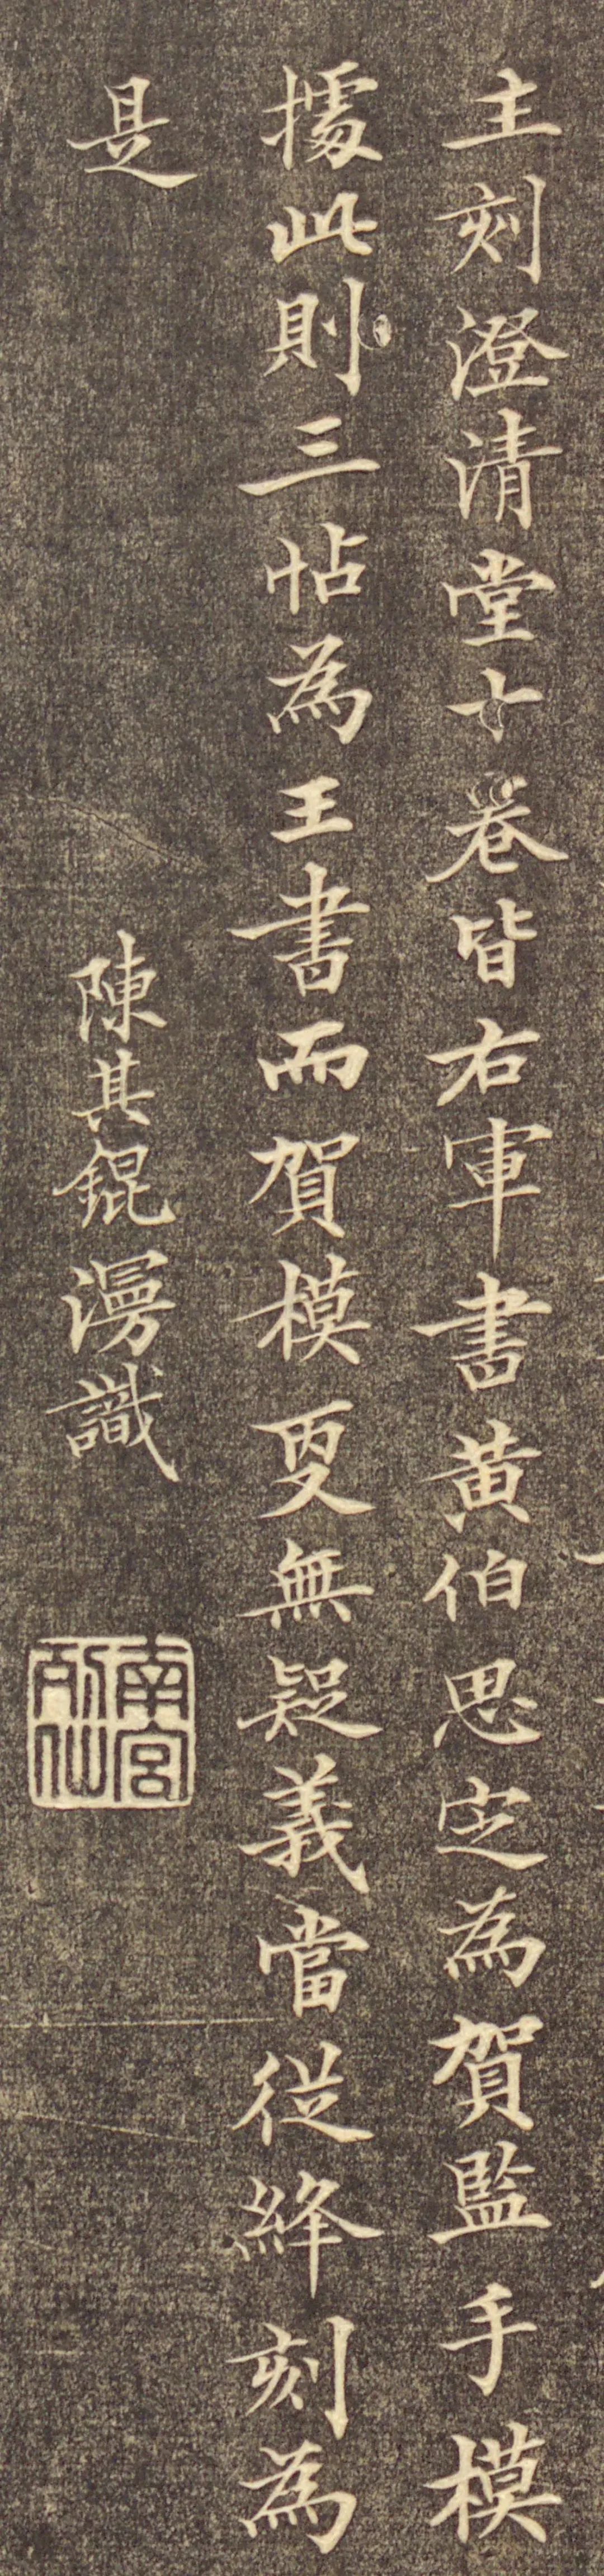 主刻澄清堂十卷皆右軍書黄伯思定為賀監手模
據此則三帖為王書而賀模更無疑義當從絳刻為
是
陳其錕漫識
南宮